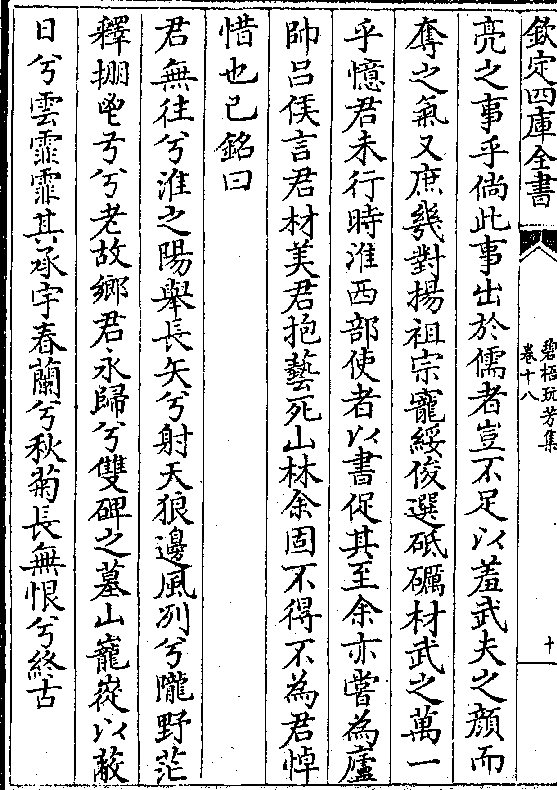 欽定四庫全書
碧梧玩芳集
卷十八
十
亮之事乎倘此事出於儒者豈不足以羞武夫之顔而
奪之氣又庶幾對揚祖宗寵綏俊選砥礪材武之萬一
乎憶君未行時淮西部使者以書促其至余亦嘗為廬
帥呂侯言君材美君抱藝死山林余固不得不為君悼
惜也已銘曰
君無往兮淮之陽舉長矢兮射天狼邊風冽兮隴野茫
釋掤鬯弓兮老故鄉君永歸兮雙碑之墓山巃嵸以蔽
日兮雲霏霏其承宇春蘭兮秋菊長無恨兮終古